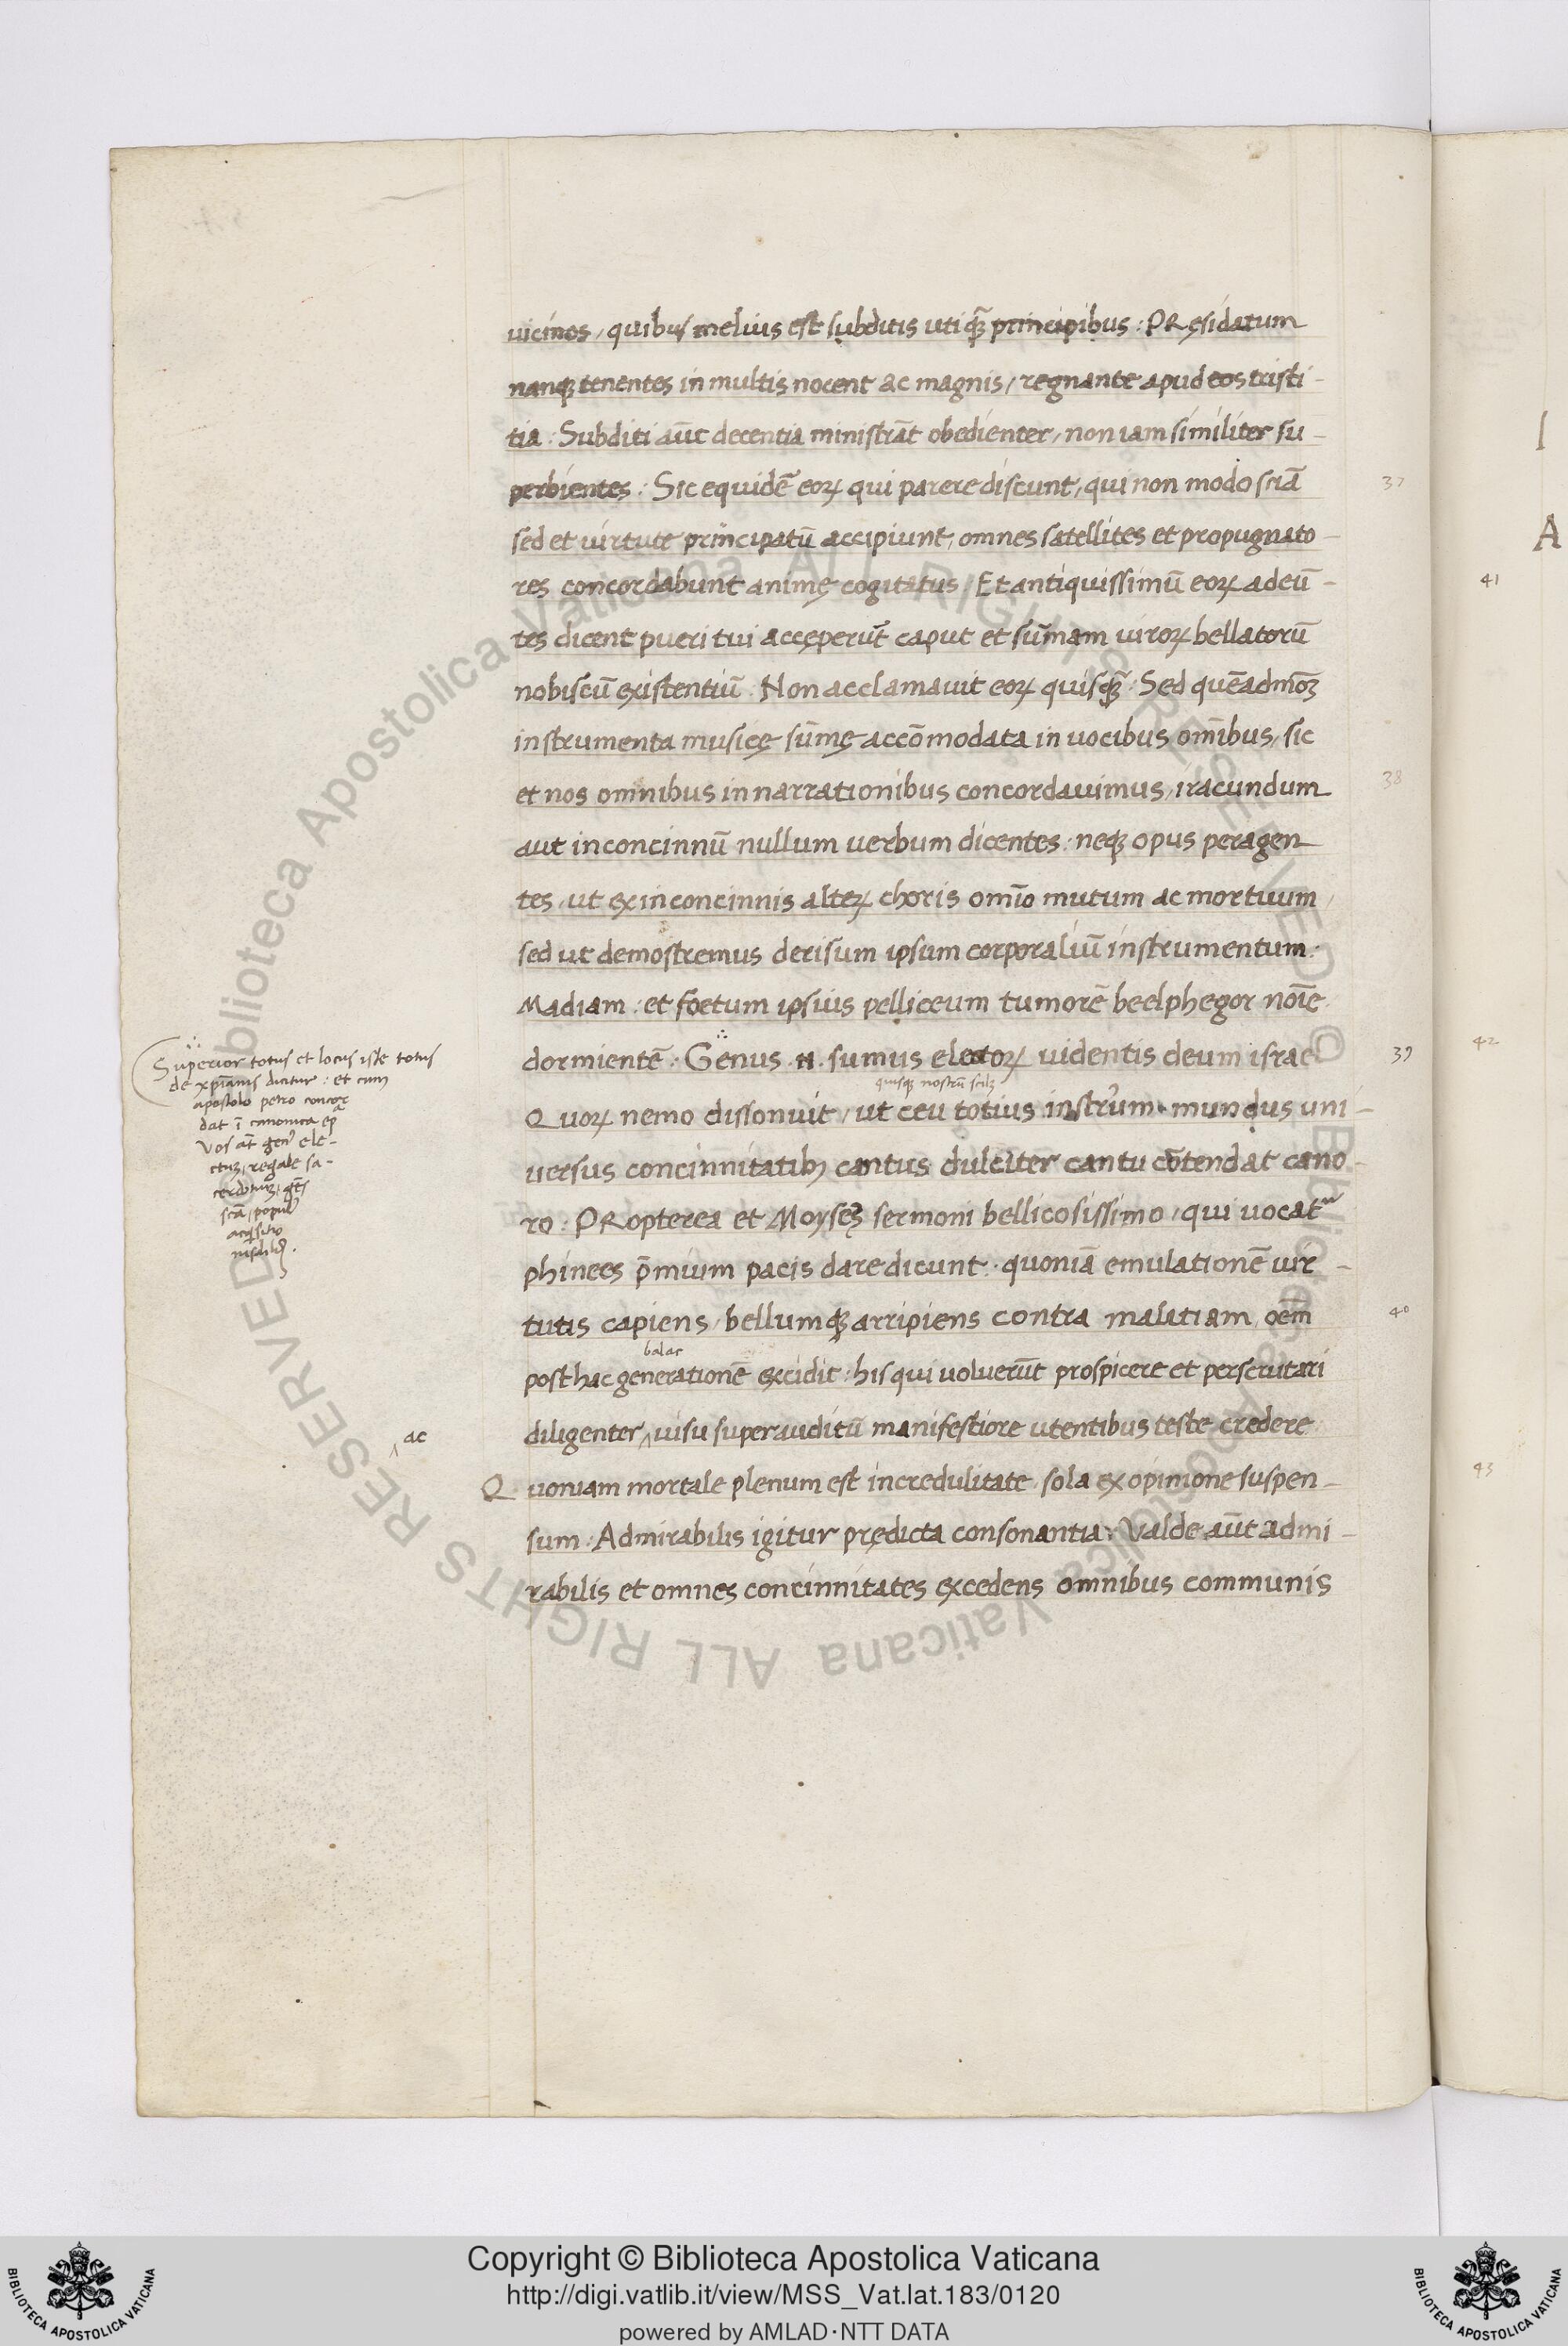 uicinos, quibus melius est subditis uti q̃ principibus: PRęsidatum
nanq; tenentes in multis nocent ac magnis, regnante apud eos tristi-
tia: Subditi aũt decentia ministrãt obedienter, non iam similiter su-
perbientes: Sic equidẽ eoꝝ qui parere discunt, qui non modo sciã
37
sed et uirtute principatũ accipiunt, omnes satellites et propugnato-
res concordabunt animę cogitatus. Et antiquissimũ eoꝝ adeũ-
41
tes dicent pueri tui acceperũt caput et sũmam uiroꝝ bellatorũ
nobiscũ existentiũ. Non acclamauit eoꝝ quisq̃: Sed quẽadmoꝫ
instrumenta musicę sũmę accõmodata in uocibus omĩbus, sic
et nos omnibus in narrationibus concordauimus, iracundum
38
aut inconcinnũ nullum uerbum dicentes: neq; opus peragen
tes, ut ex inconcinnis alteꝝ choris omĩo mutum ac mortuum,
sed ut demostremus derisum ipsum corporaliũ instrumentum.
Madiam: et foetum ipsius pelliceum tumorẽ beelphegor noĩe
dormientẽ: Genus .n. sumus electoꝝ uidentis deum israel
39
42
quisq; nostrũ scilꝫ
Quoꝝ nemo dissonuit, ut ceu totius instrũm mundus uni-
uersus concinnitatibꝫ cantus dulciter cantu cõtendat cano-
ro: PRopterea et Moyseꝫ sermoni bellicosissimo, qui uocat
phinees p̃mium pacis dare dicunt: quoniã emulationẽ uir-
tutis capiens, bellumq; arripiens contra malitiam oẽm
40
balac
posthac generationẽ excidit: his qui uoluerũt prospicere et perscrutari
diligenter, uisu super auditũ manifestiore utentibus teste credere
Quoniam mortale plenum est incredulitate sola ex opinione suspen-
43
sum: Admirabilis igitur prędicta consonantia: Valde aũt admi-
rabilis et omnes concinnitates excedens omnibus communis
Superior totus et locus iste totus
de xp̃ianis dicitur: et cum
apostolo petro concor
dat ĩ canonica ep̃
Vos aũt gen' ele-
ctuꝫ, regale sa-
cerdotiuꝫ, gẽs
scã, popul'
acq̃sitio
ac
I
A
© Biblioteca Apostolica Vaticana ALL RIGHTS RESERVED
© Biblioteca Apostolica Vaticana ALL RIGHTS RESERVED
Copyright © Biblioteca Apostolica Vaticana
http://digi.vatlib.it/view/MSS_Vat.lat.183/0120
powered by AMLAD·NTT DATA
BIBLIOTECA APOSTOLICA VATICANA
BIBLIOTECA APOSTOLICA VATICANA